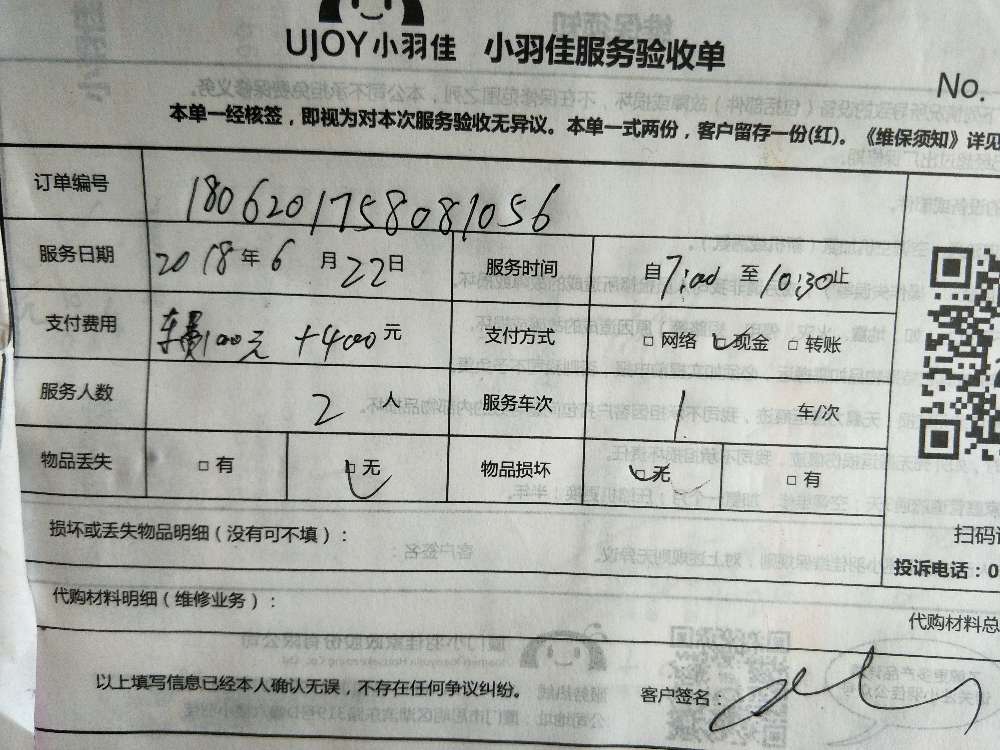 UJOY小羽佳 小羽佳服务验收单
No.
本单一经核签，即视为对本次服务验收无异议。本单一式两份，客户留存一份(红)。《维保须知》详见
订单编号 1806201758081056
服务日期 2018年6月22日 服务时间 自7:00至10:30止
支付费用 车费100元 +400元 支付方式 □网络 □现金 □转账
服务人数 2人 服务车次 1 车/次
物品丢失 □有 □无 物品损坏 □无 □有
损坏或丢失物品明细（没有可不填）：
扫码
投诉电话：0
代购材料明细（维修业务）：
代购材料总
以上填写信息已经本人确认无误，不存在任何争议纠纷。 客户签名：